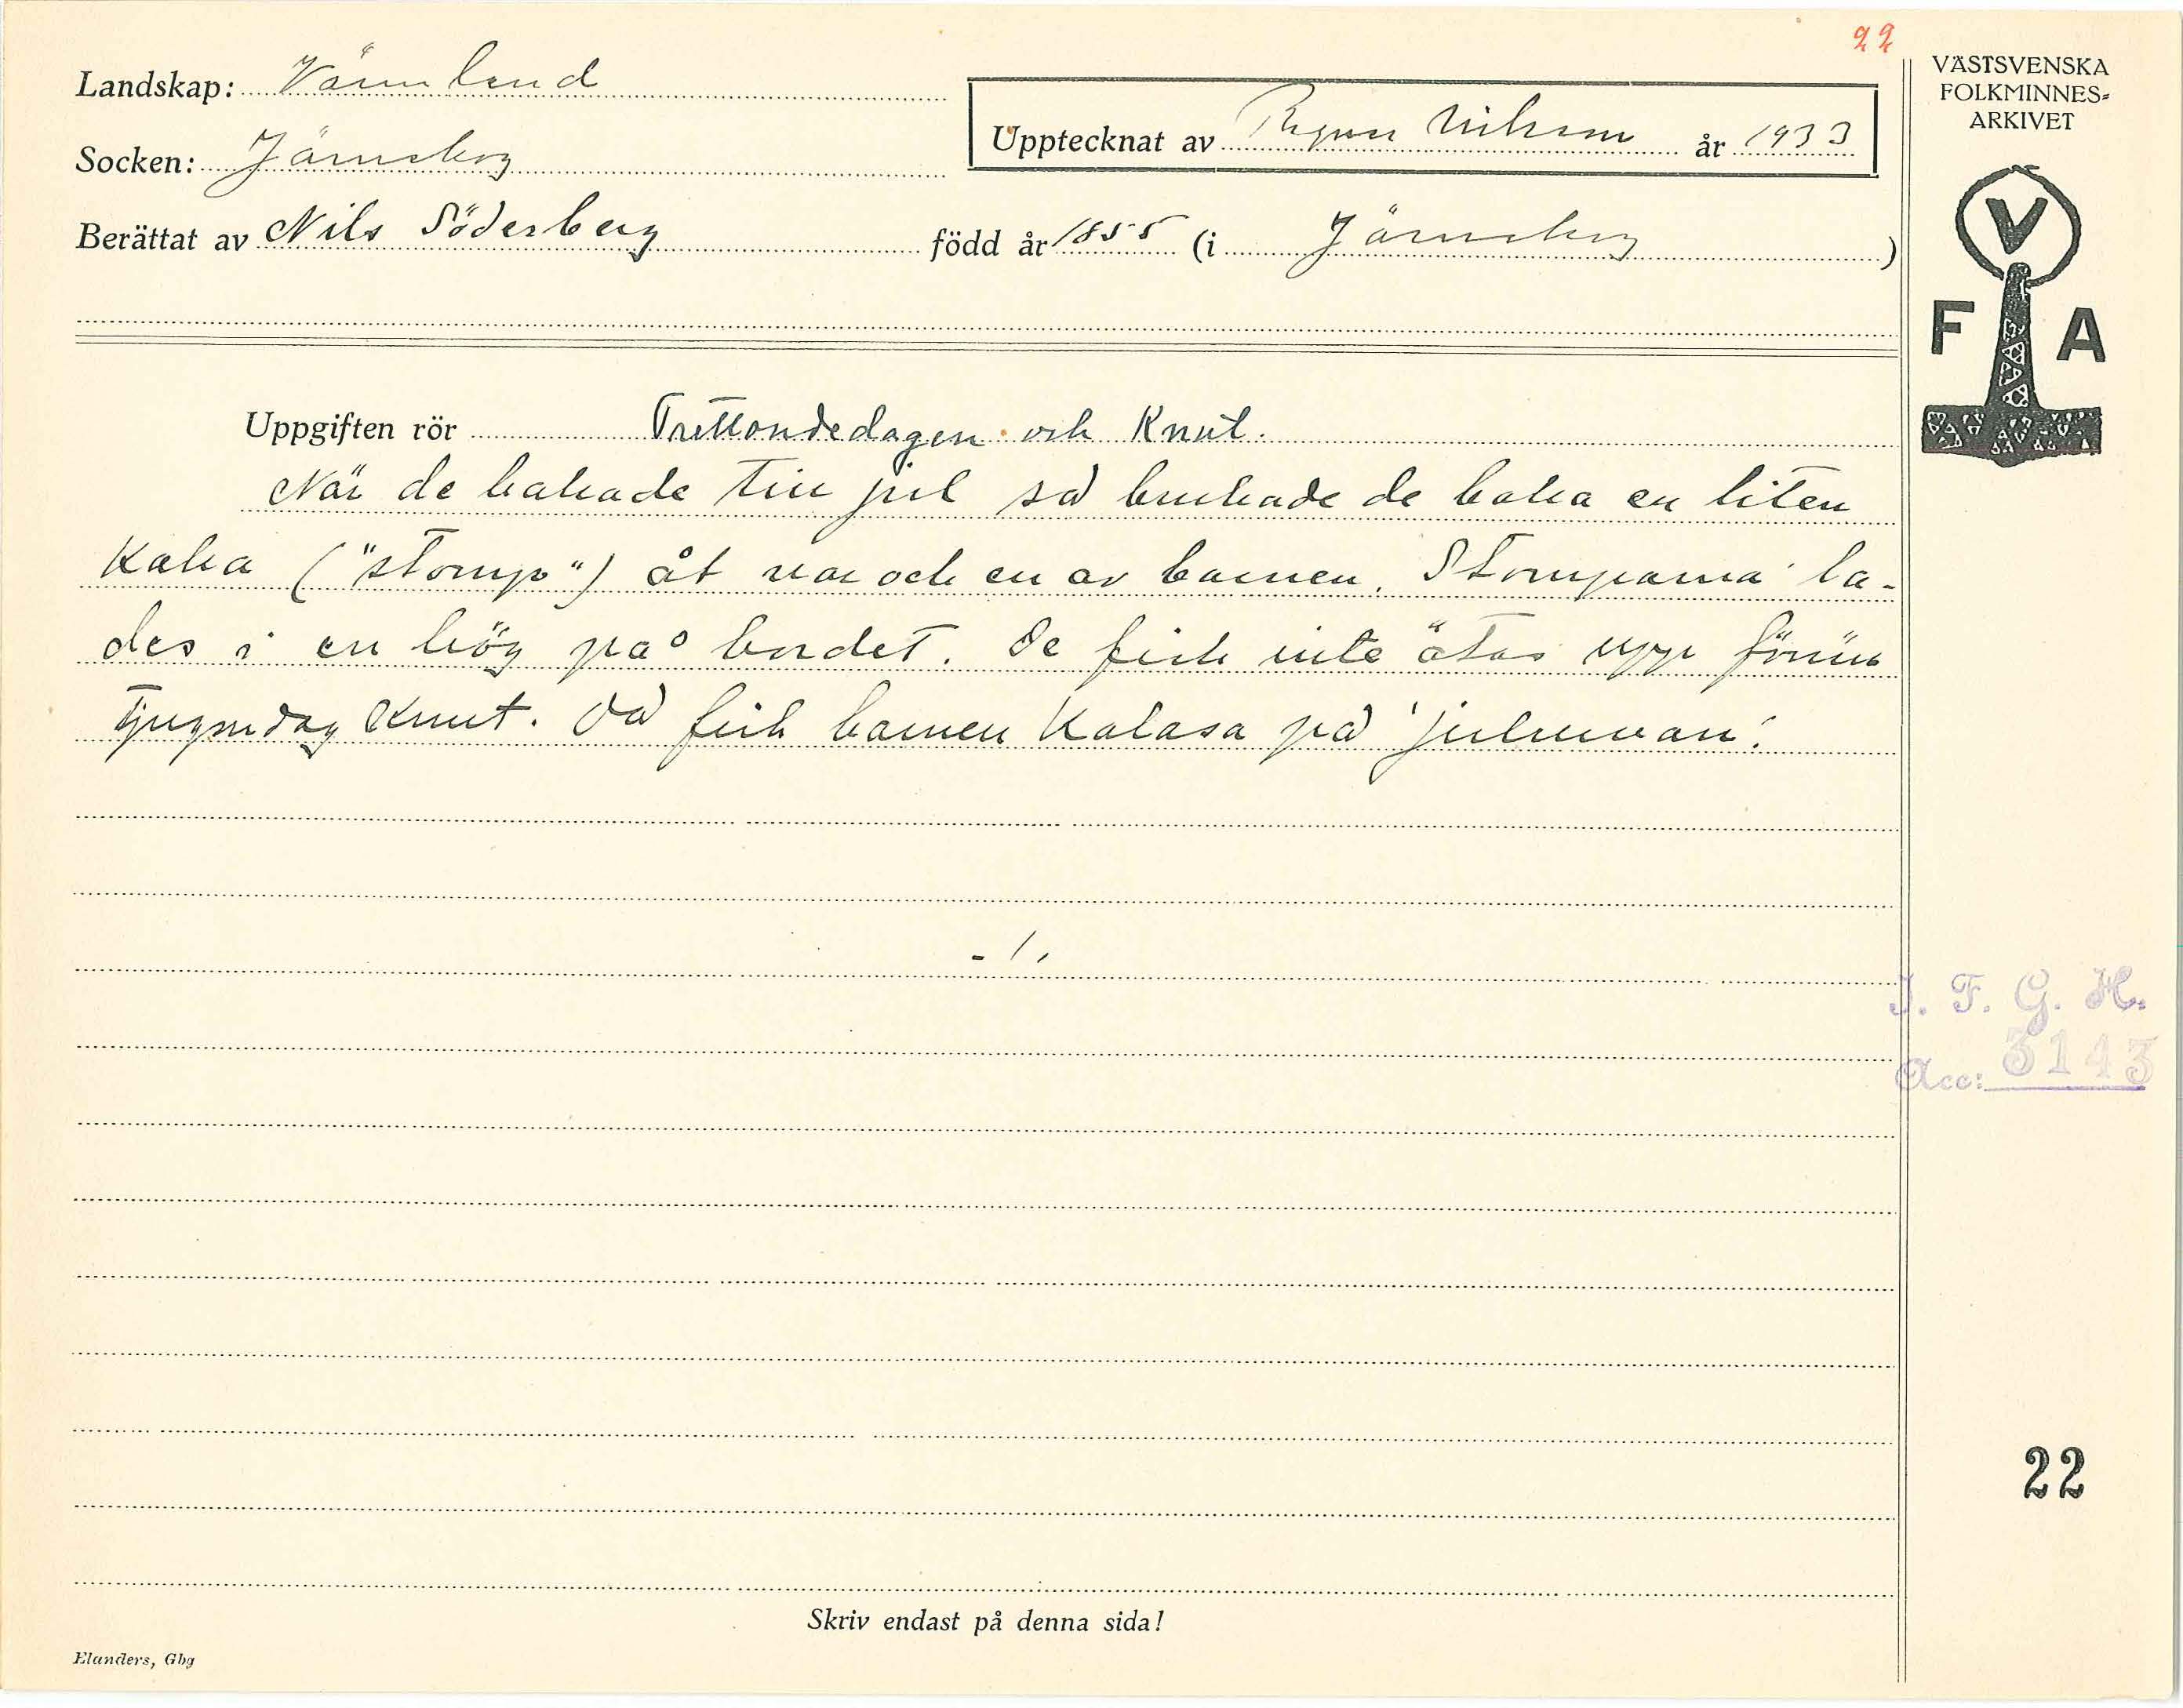 22
Landskap: Värmland
Socken: Järnskog
Upptecknat av Ragnar Nilsson år 1933
Berättat av Nils Söderberg född år 1855 (i Järnskog)
VÄSTSVENSKA
FOLKMINNES-
ARKIVET
V
F A
Uppgiften rör Trettondedagen och Knut.
När de bakade till jul så brukade de baka en liten
kaka ("stomp") åt var och en av barnen. Stomparna la-
des i en hög på bordet. De fick inte ätas upp förrän
Tjugondag Knut. Då fick barnen kalasa på 'julruvan'.
- / ,
I. F. G. H.
Acc: 3143
22
Skriv endast på denna sida!
Elanders, Gbg